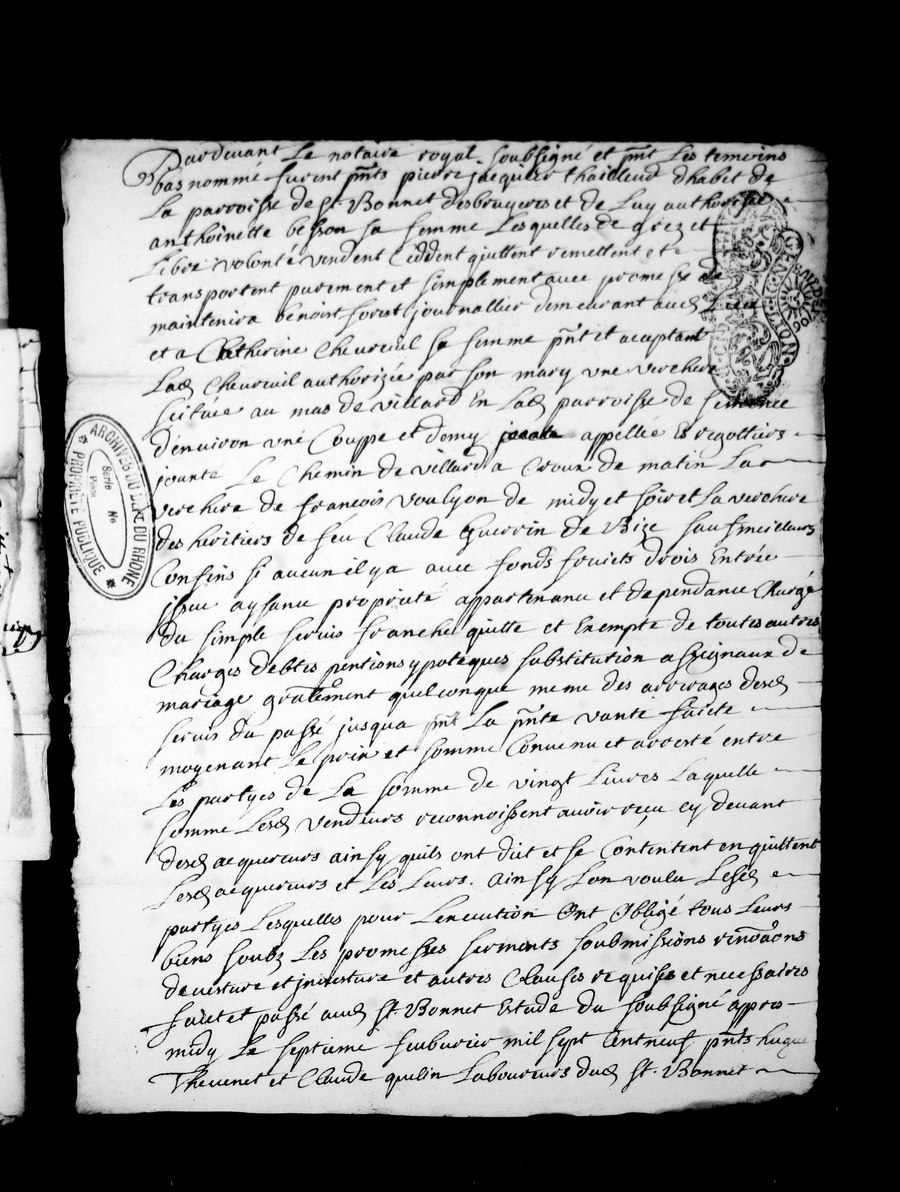 Pardevant Le notaire royal soubsigné et pnt Les temoins
bas nommé furent pnts pierre jacquier thailleur dhabit de
La parroisse de St. Bonnet desbruyeres et de Luy authorisée
anthoinette besson sa femme Lesquelles de grez et
Libre volonté vendent Ceddent quittent remettent et
transportent purement et simplement avec promesse de
maintenira benoist forest journallier demeurant aud Lieu
et a Catherine Chevreuil sa femme pnt et aceptant
Lad Chevreuil authorizée par son mary une verchere
scituée au mas de villard En Lad parroisse de
d'environ une Couppe et demy appellée Es regottiers
jouxte Le Chemin de villard a de matin La
verchere de françois voulyon de midy et soir et La verchere
des heritiers de feu Claude Guerrin de Bize sauf meilleurs
Confins si aucun il y a avec fonds Drois Entrée
issue aysance proprieté appartenance et dependance Chargé
du simple servis franche quitte et Exempte de toutes autres
Charges debtes pentions ypoteques substitution assignaux de
mariage gralement quelconque meme des arrerages desd
servis du passé jusqua pnt La pnte vante faicte
moyenant Le prix et somme Convenu et arresté entre
Les partyes de La somme de vingt Livres Laquelle
somme Lesd vendeurs reconnoissent avoir reçu cy devant
desd acquereurs ainsy quils ont dit et se Contentent en quittent
Lesd acquereurs et Les Leurs. Ainsy Lon voulu Lesd
partyes Lesquelles pour Lexecution Ont Obligé tous Leurs
biens soubz Les promesses serments soubmissions
de vesture et investure et autres Clauses requises et necessaires
faict et passé aud St. Bonnet Estude du soubsigné apres
midy Le septieme feubvrier mil sept Cent neuf pnts hugue
Thevenet et Claude quelin Laboureurs dud St. Bonnet
ARCHIVES DU DEPt DU RHONE
PROPRIÉTÉ PUBLIQUE
Série
No